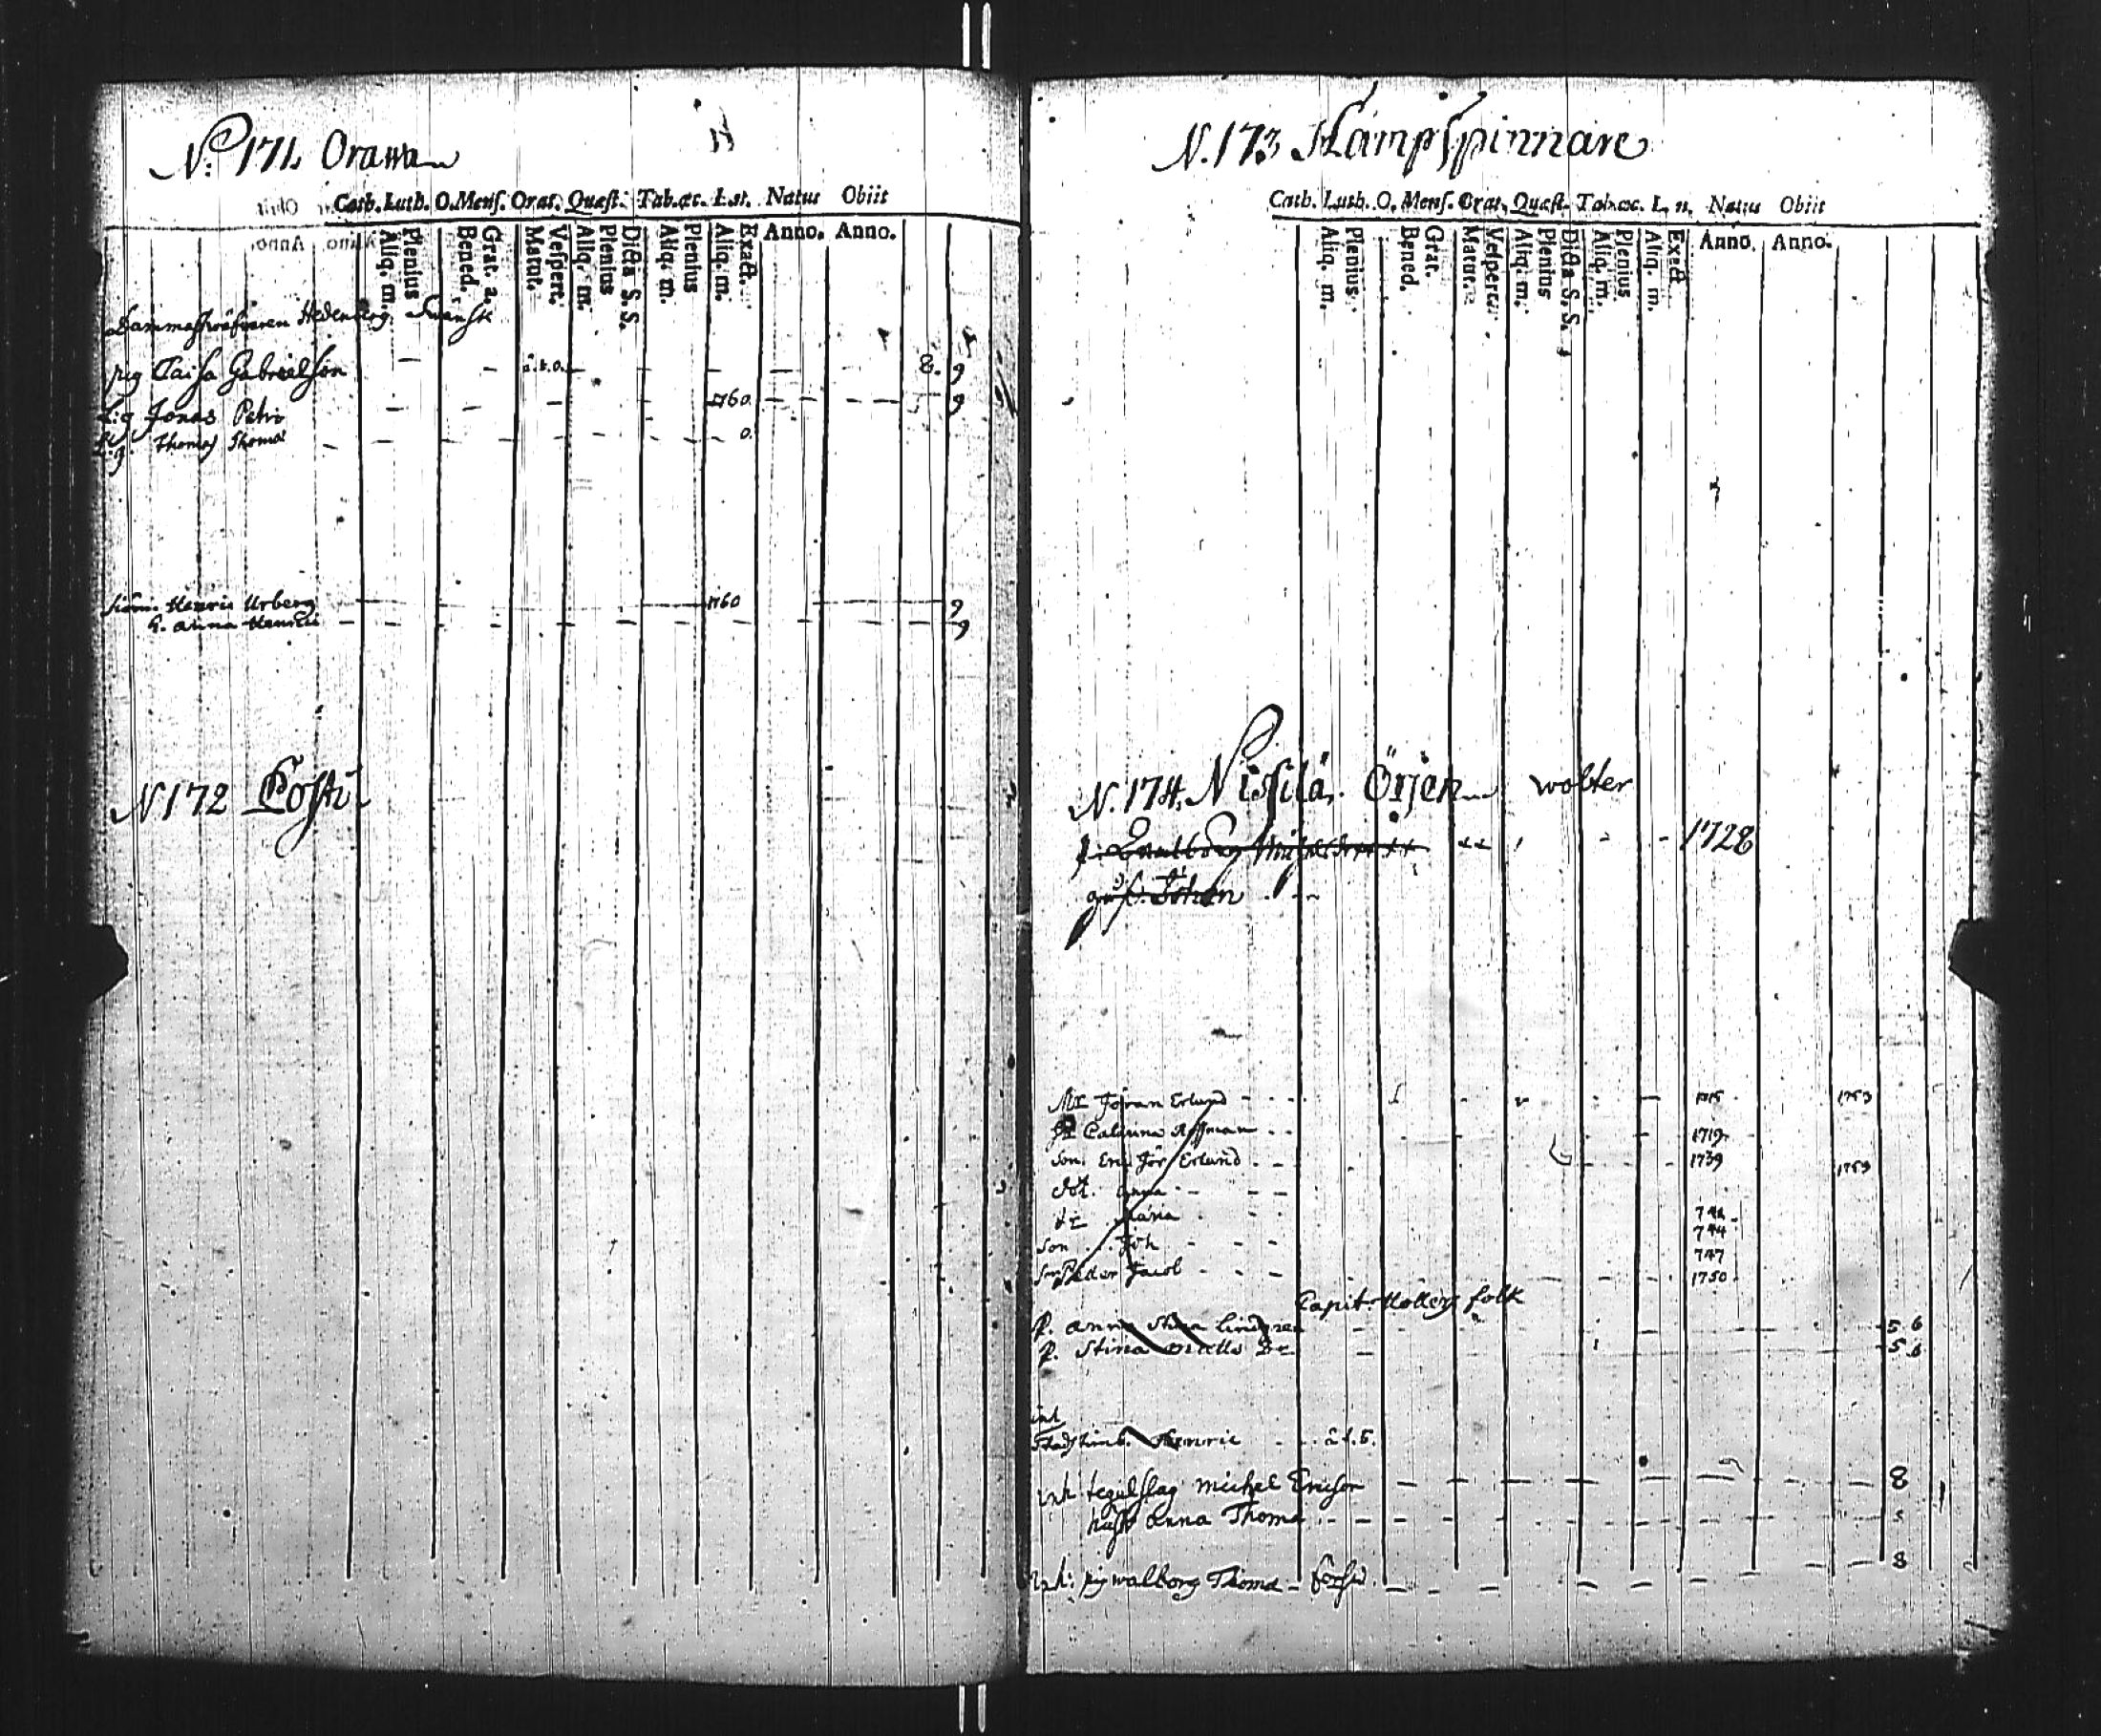 No. 171. Orawan
Cath. Luth. O. Mens. Orat. Quæst. Tab. œc. L. n. Natus Obiit
Aliq. m. Plenius Bened. Grat. a. Matut. Vespert. Aliq. m. Plenius Dicta S. S. Aliq. m. Plenius Aliq. m. Exact. Anno. Anno.
Hedenberg Swensk
pig Caisa Gabrielson 8. 9
Jonas Petri 1760 9
Thomas Thomæ 0
Henric Urberg 1760 9
h. Anna Henrici 9
N 172 Posti
N. 173 Hampspinnare
Cath. Luth. O. Mens. Orat. Quæst. Tab. œc. L. n. Natus Obiit
Aliq. m. Plenius. Bened. Grat. Matut. Vespert. Aliq. m. Plenius Dicta S. S. Aliq. m. Plenius Aliq. m. Exact Anno. Anno.
N. 174. Nissilä. Örjen wolter
1728
Johan
Mr Jöran Erlund 1715 1753
Catarina Hoffman 1719
Son. Eric Jör Erlund 1739 1759
dot. Anna
dr Maria 742
744
Son Joh 747
Son Petter Jacob 1750
Capit. Mollers folk
P. Anna Stina Lindgren 5 6
P. Stina Matts dr 5 6
inh
Henric
inh tegelslag Michel Ericson 8
hust Anna Thoma
inh: pig walborg Thoma 8